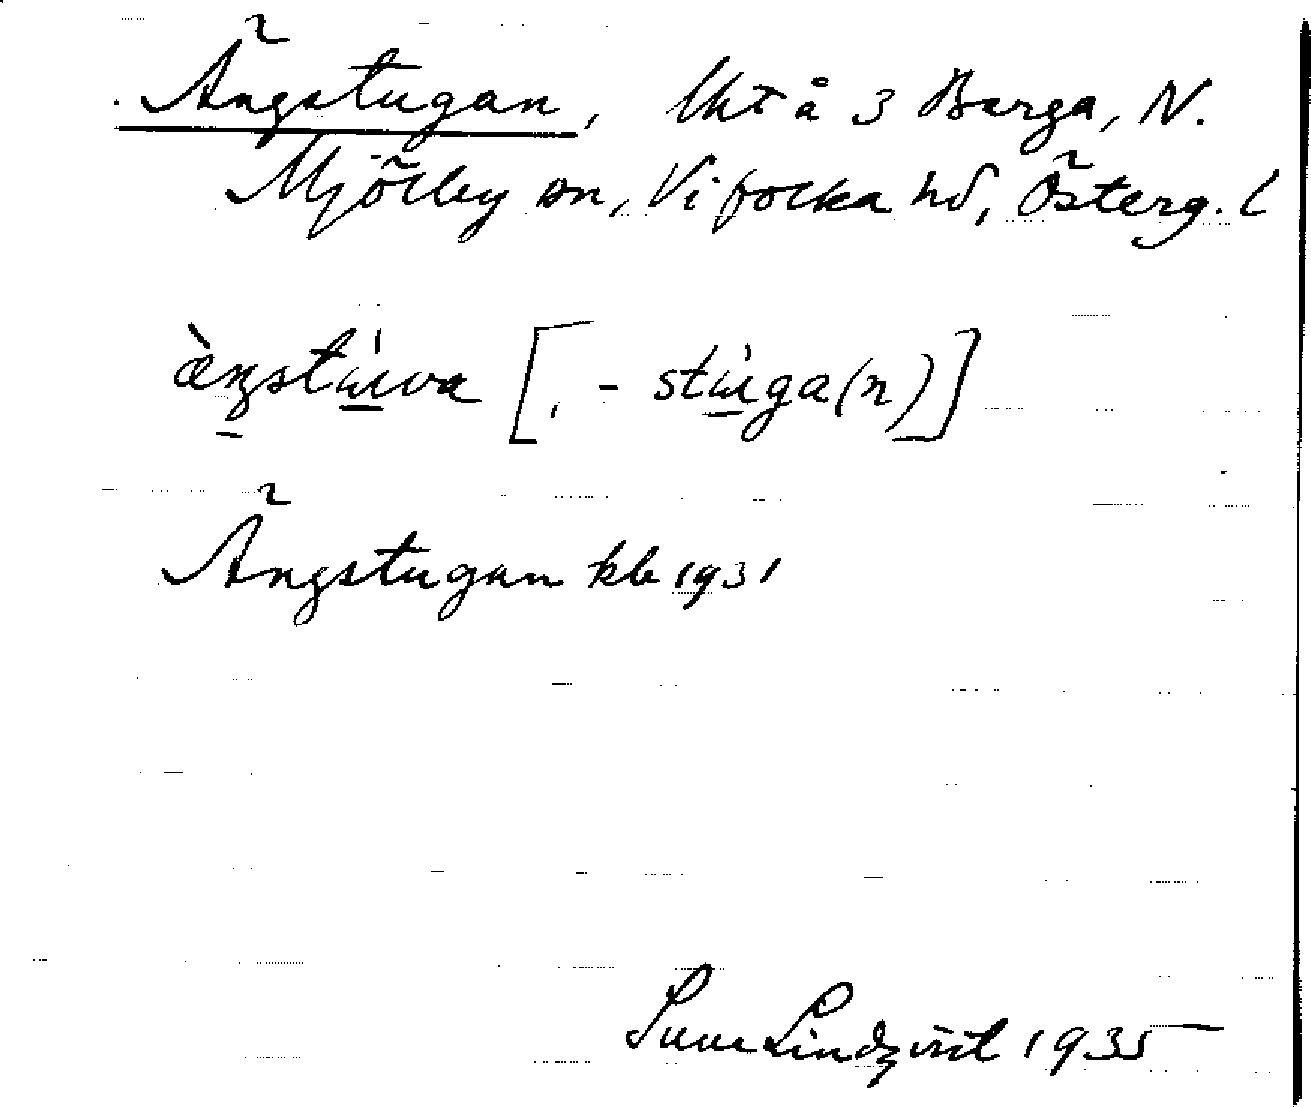 Ängstugan, lht å 3 Berga, N.
Mjölby sn, Vifolka hd, Österg. l
æ̀ŋstúva [, - stúga(n)]
Ängstugan kb 1931
Sune Lindqvist 1935